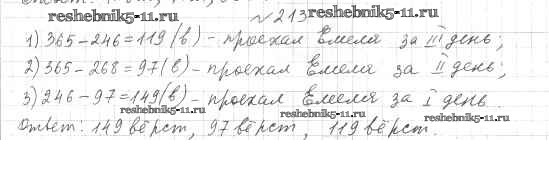 reshebnik5-11.ru №213 reshebnik5-11.ru
1) 365-246=119(в) - проехал Емеля за III день;
2) 365-268=97(в) - проехал Емеля за II день;
3) 246-97=149(в) - проехал Емеля за I день.
reshebnik5-11.ru reshebnik5-11.ru reshebnik5-11.ru
Ответ: 149 вёрст, 97 вёрст, 119 вёрст.